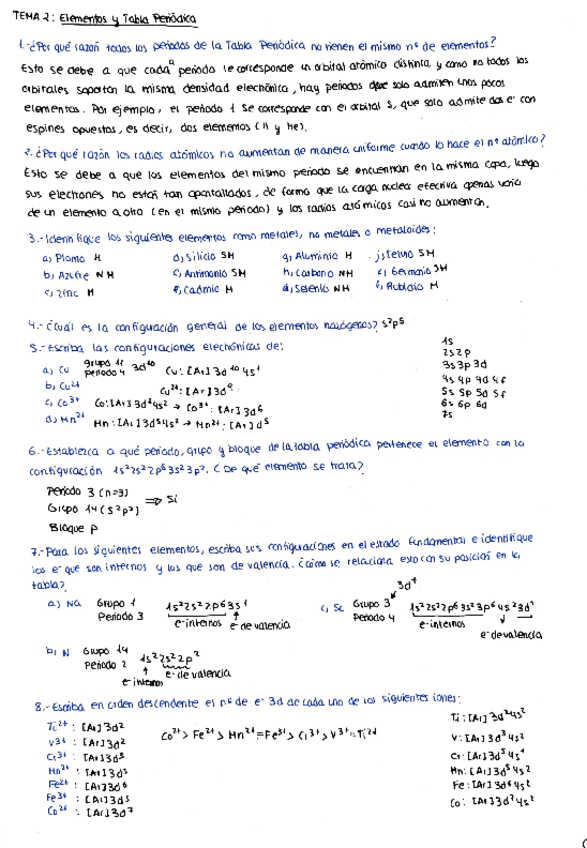 TEMA 2: Elementos y Tabla Periódica
1.-¿Por qué razón todos los periodos de la Tabla Periódica no tienen el mismo nº de elementos?
Esto se debe a que cada periodo le corresponde un orbital atómico distinto y como no todos los
orbitales soportan la misma densidad electrónica, hay periodos que solo admiten unos pocos
elementos. Por ejemplo, el periodo 1 se corresponde con el orbital s, que solo admite dos e- con
espines opuestos, es decir, dos elementos (H y He).
2.-¿Por qué razón los radios atómicos no aumentan de manera uniforme cuando lo hace el nº atómico?
Esto se debe a que los elementos del mismo periodo se encuentran en la misma capa, luego
sus electrones no están tan apantallados, de forma que la carga nuclear efectiva apenas varía
de un elemento a otro (en el mismo periodo) y los radios atómicos casi no aumentan.
3.-Identifique los siguientes elementos como metales, no metales o metaloides:
a) Plomo M d) Silicio SM g) Aluminio M j) Teluro SM
b) Azufre NM e) Antimonio SM h) Carbono NM k) Germanio SM
c) Zinc M f) Cadmio M i) Selenio NM l) Rubidio M
4.-¿Cuál es la configuración general de los elementos halógenos? s²p⁵
5.-Escriba las configuraciones electrónicas de:
a) Cu grupo 11 periodo 4 3d¹⁰ Cu: [Ar] 3d¹⁰ 4s¹
b) Cu²⁺ Cu²⁺: [Ar] 3d⁹
c) Co³⁺ Co: [Ar] 3d⁷4s² → Co³⁺: [Ar] 3d⁶
d) Mn²⁺ Mn: [Ar] 3d⁵4s² → Mn²⁺: [Ar] d⁵
1s
2s 2p
3s 3p 3d
4s 4p 4d 4f
5s 5p 5d 5f
6s 6p 6d
7s
6.-Establezca a qué periodo, grupo y bloque de la tabla periódica pertenece el elemento con la
configuración 1s²2s²2p⁶3s²3p². ¿De qué elemento se trata?
Periodo 3 (n=3)
Grupo 14 (s²p²) ⇒ Si
Bloque p
7.-Para los siguientes elementos, escriba sus configuraciones en el estado fundamental e identifique
los e- que son internos y los que son de valencia. ¿Cómo se relaciona esto con su posición en la
tabla?
a) Na Grupo 1 Periodo 3 1s²2s²2p⁶3s¹
e- internos e- de valencia
c) Sc Grupo 3 Periodo 4 3d¹ 1s²2s²2p⁶3s²3p⁶4s²3d¹
e- internos e- de valencia
b) N Grupo 14 Periodo 2 1s²2s²2p²
e- internos e- de valencia
8.-Escriba en orden descendente el nº de e- 3d de cada uno de los siguientes iones:
Ti²⁺: [Ar] 3d²
V³⁺: [Ar] 3d²
Cr³⁺: [Ar] 3d³
Mn²⁺: [Ar] 3d⁵
Fe²⁺: [Ar] 3d⁶
Fe³⁺: [Ar] 3d⁵
Co²⁺: [Ar] 3d⁷
Co²⁺ > Fe²⁺ > Mn²⁺ = Fe³⁺ > Cr³⁺ > V³⁺ = Ti²⁺
Ti: [Ar] 3d²4s²
V: [Ar] 3d³4s²
Cr: [Ar] 3d⁵4s¹
Mn: [Ar] 3d⁵4s²
Fe: [Ar] 3d⁶4s²
Co: [Ar] 3d⁷4s²